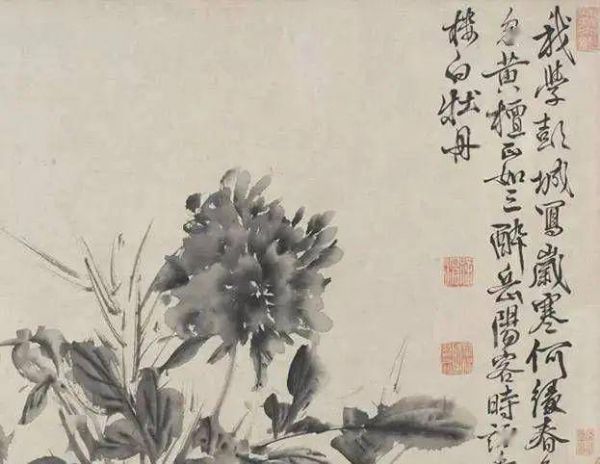 我學彭城寫歲寒何緣春
黃檀正如三醉岳陽客時
樓白牡丹